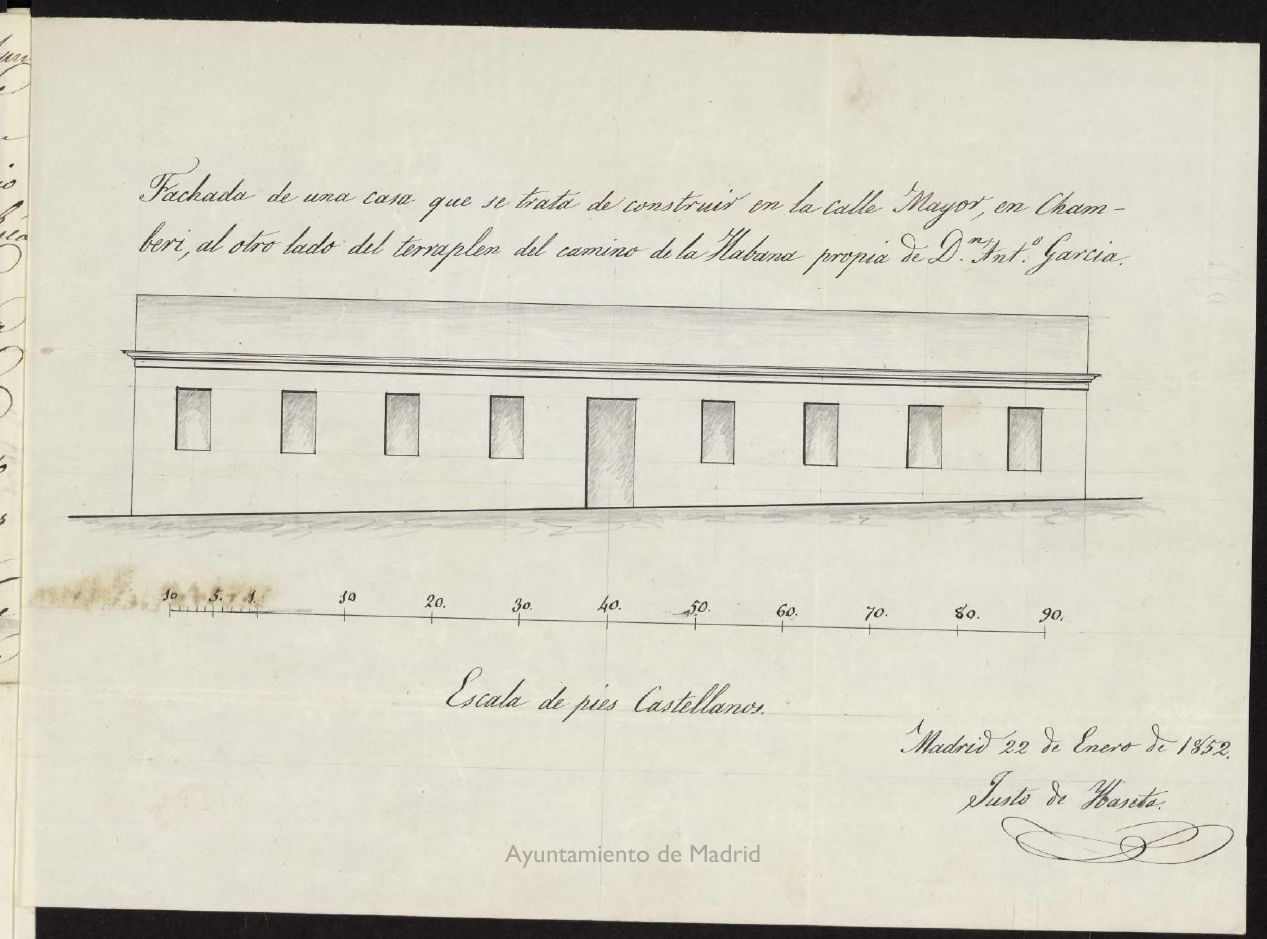 Fachada de una casa que se trata de construir en la calle Mayor, en Cham-
beri, al otro lado del terraplen del camino de la Habana propia de D.ⁿ Ant.º Garcia.
10 5. 1. 10 20. 30. 40. 50. 60. 70. 80. 90.
Escala de pies Castellanos.
Madrid 22 de Enero de 1852.
Justo de
Ayuntamiento de Madrid